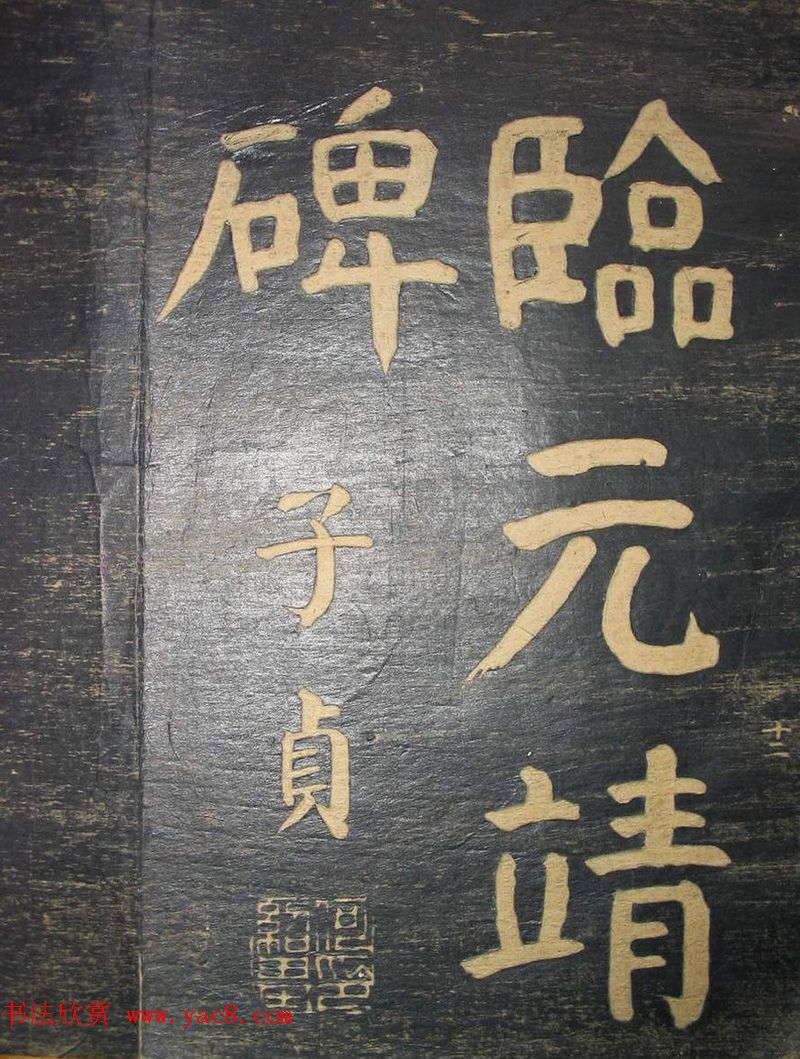 臨元靖
碑
子貞
十二
书法欣赏 www.yac8.com